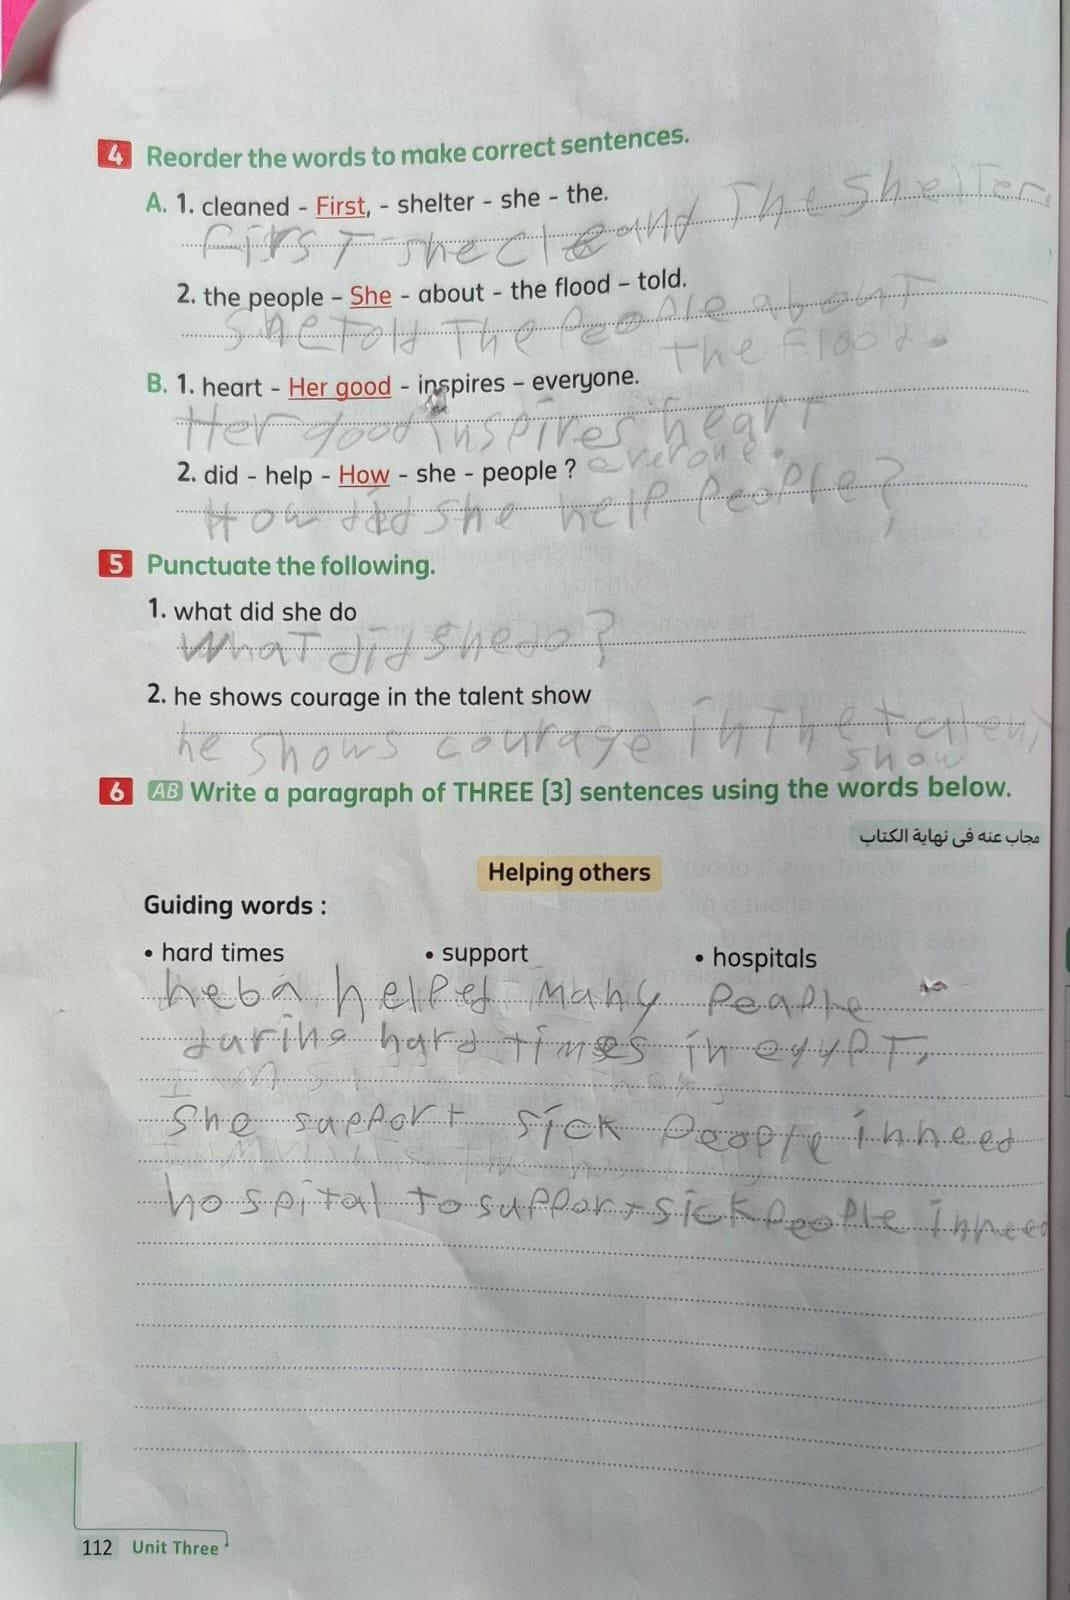 4 Reorder the words to make correct sentences.
A. 1. cleaned - First, - shelter - she - the.
First she cleand The shelter
2. the people – She - about - the flood – told.
She Told The People about
the flood.
B. 1. heart - Her good - inspires – everyone.
Her good inspires heart
everone.
2. did - help - How - she - people ?
How did she help People?
5 Punctuate the following.
1. what did she do
What did she do?
2. he shows courage in the talent show
he shows courage in The talent
show
6 AB Write a paragraph of THREE (3) sentences using the words below.
مجاب عنه فى نهاية الكتاب
Helping others
Guiding words :
• hard times • support • hospitals
heba helped many Peaple
daring hard times in egypT,
She support sick People in need
hospital to support sick People in need
112 Unit Three